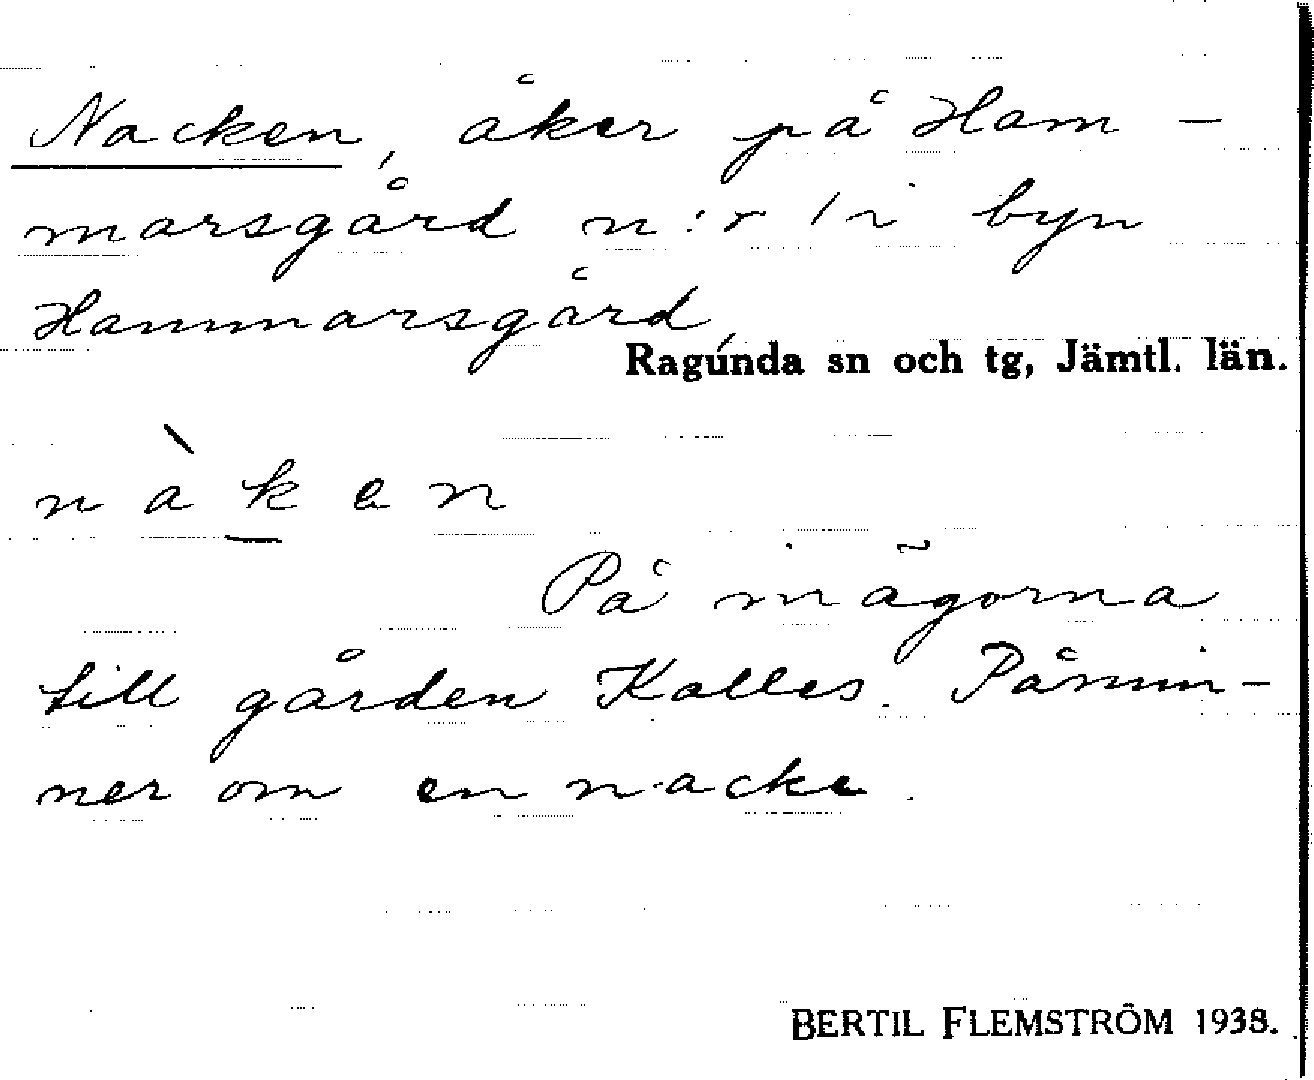 Nacken, åker på Ham-
marsgård n:r 1 i byn
Hammarsgård,
Ragunda sn och tg, Jämtl. län.
nàken
På inägorna
till gården Kalles. Påmin-
ner om en nacke.
BERTIL FLEMSTRÖM 1938.